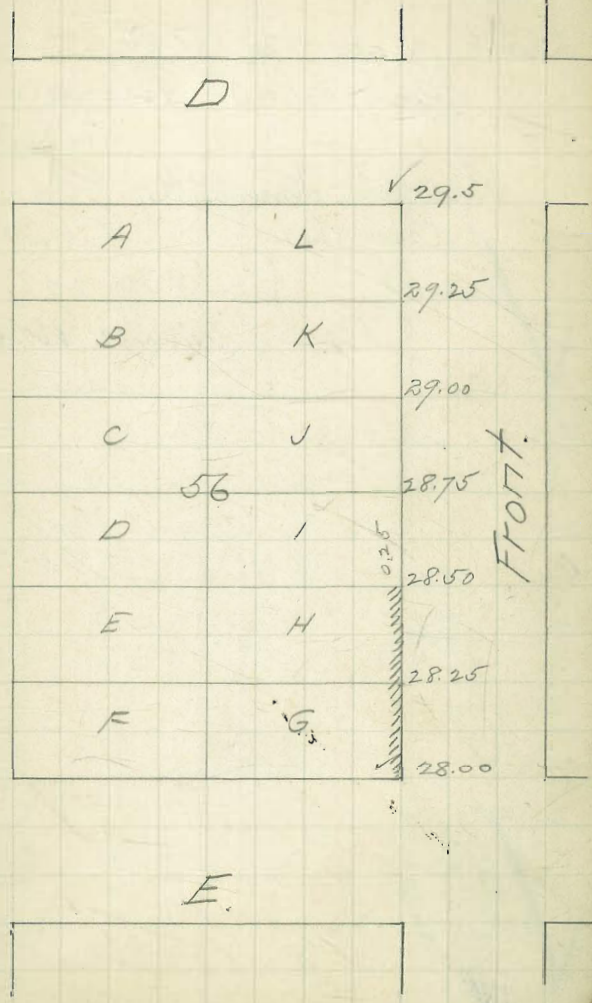 D
✓ 29.5
A L
29.25
B K
29.00
C J
56 28.75
D I 0.25
28.50
E H
28.25
F G
✓ 28.00
Front.
E.